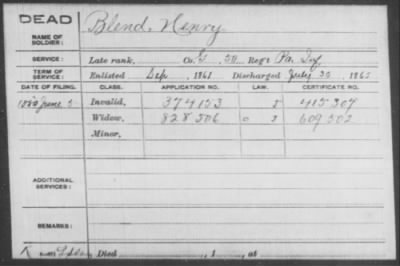 DEAD
NAME OF SOLDIER: Blend, Henry
SERVICE: Late rank, Co. G, 50 Reg't Pa. Inf
TERM OF SERVICE: Enlisted Sep , 1861 Discharged July 30 , 1865
DATE OF FILING. CLASS. APPLICATION NO. LAW. CERTIFICATE NO.
1880 June 5 Invalid, 374153 415304
Widow, 828506 609502
Minor,
ADDITIONAL SERVICES:
REMARKS:
Died , 1 , at